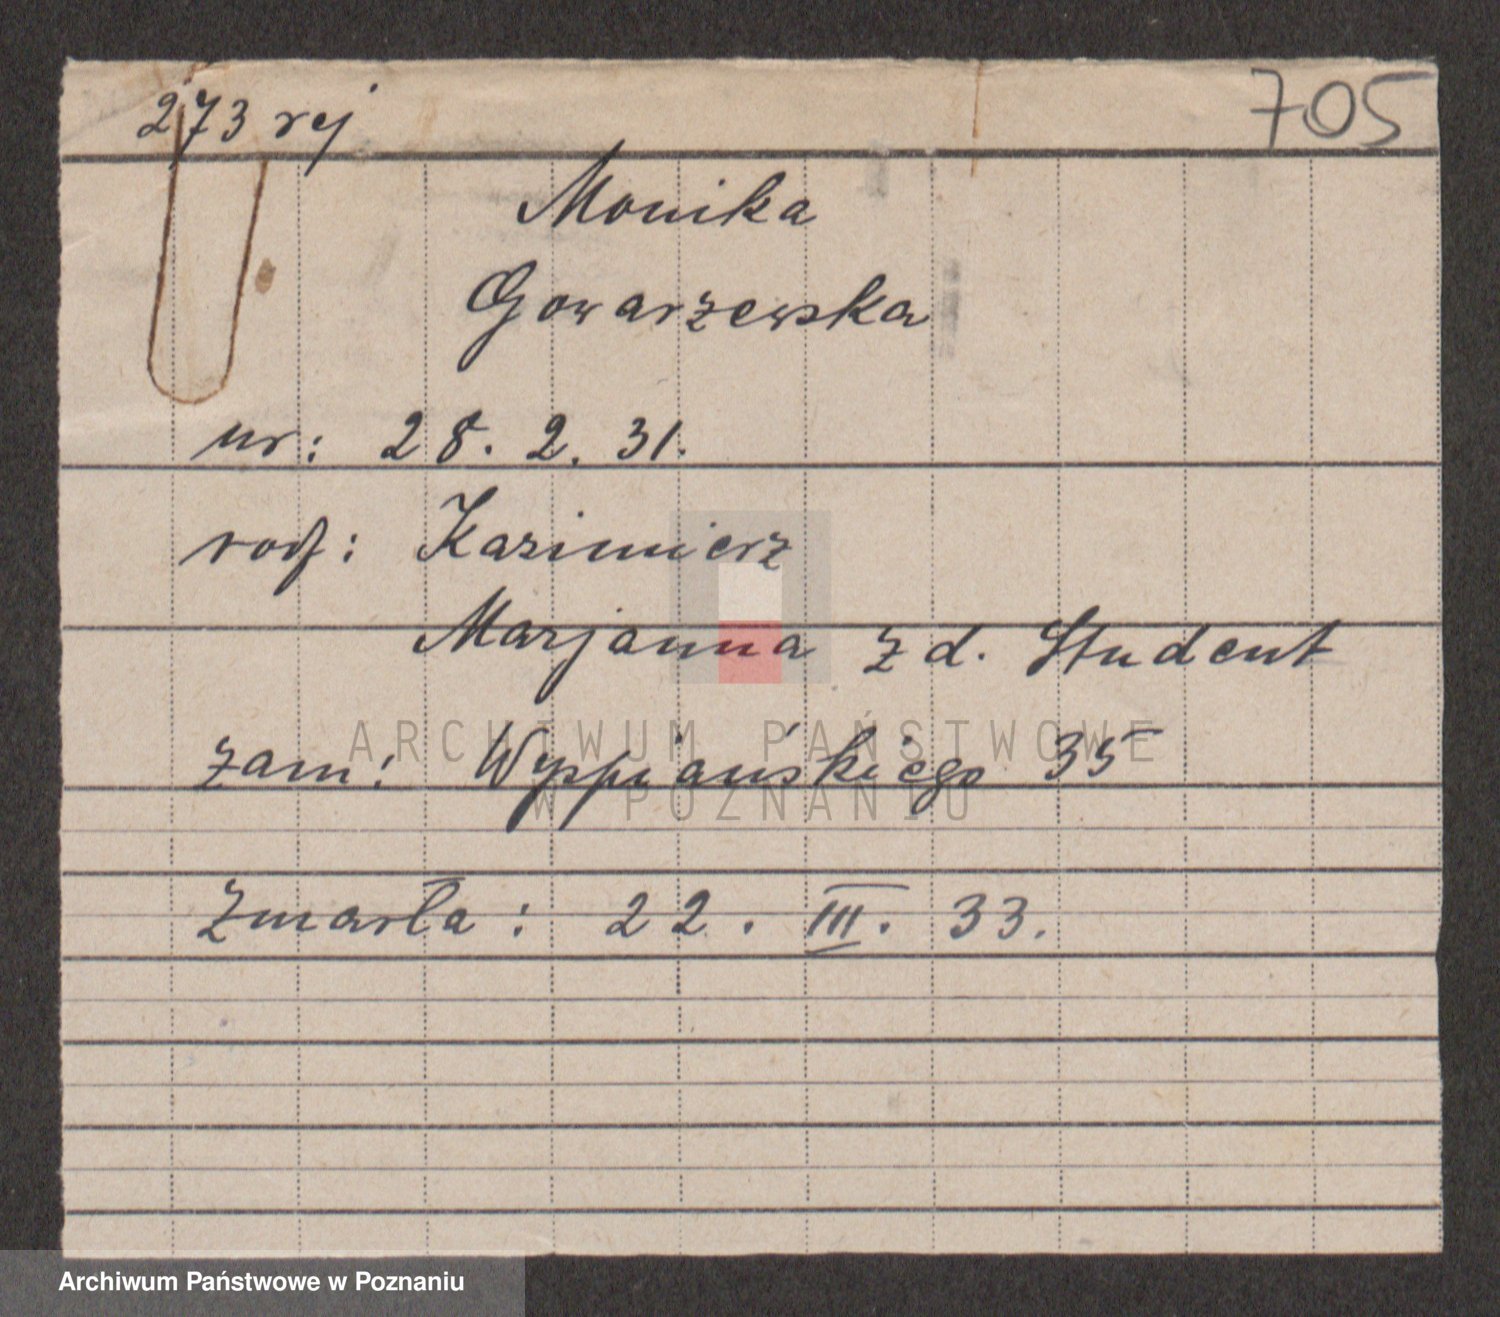 273 rej
705
Monika
Gowarzewska
ur: 28. 2. 31.
rodz: Kazimierz
Marjanna z d. Student
zam: Wyspiańskiego 35
Zmarła: 22. III. 33.
ARCHIWUM PAŃSTWOWE
W POZNANIU
Archiwum Państwowe w Poznaniu